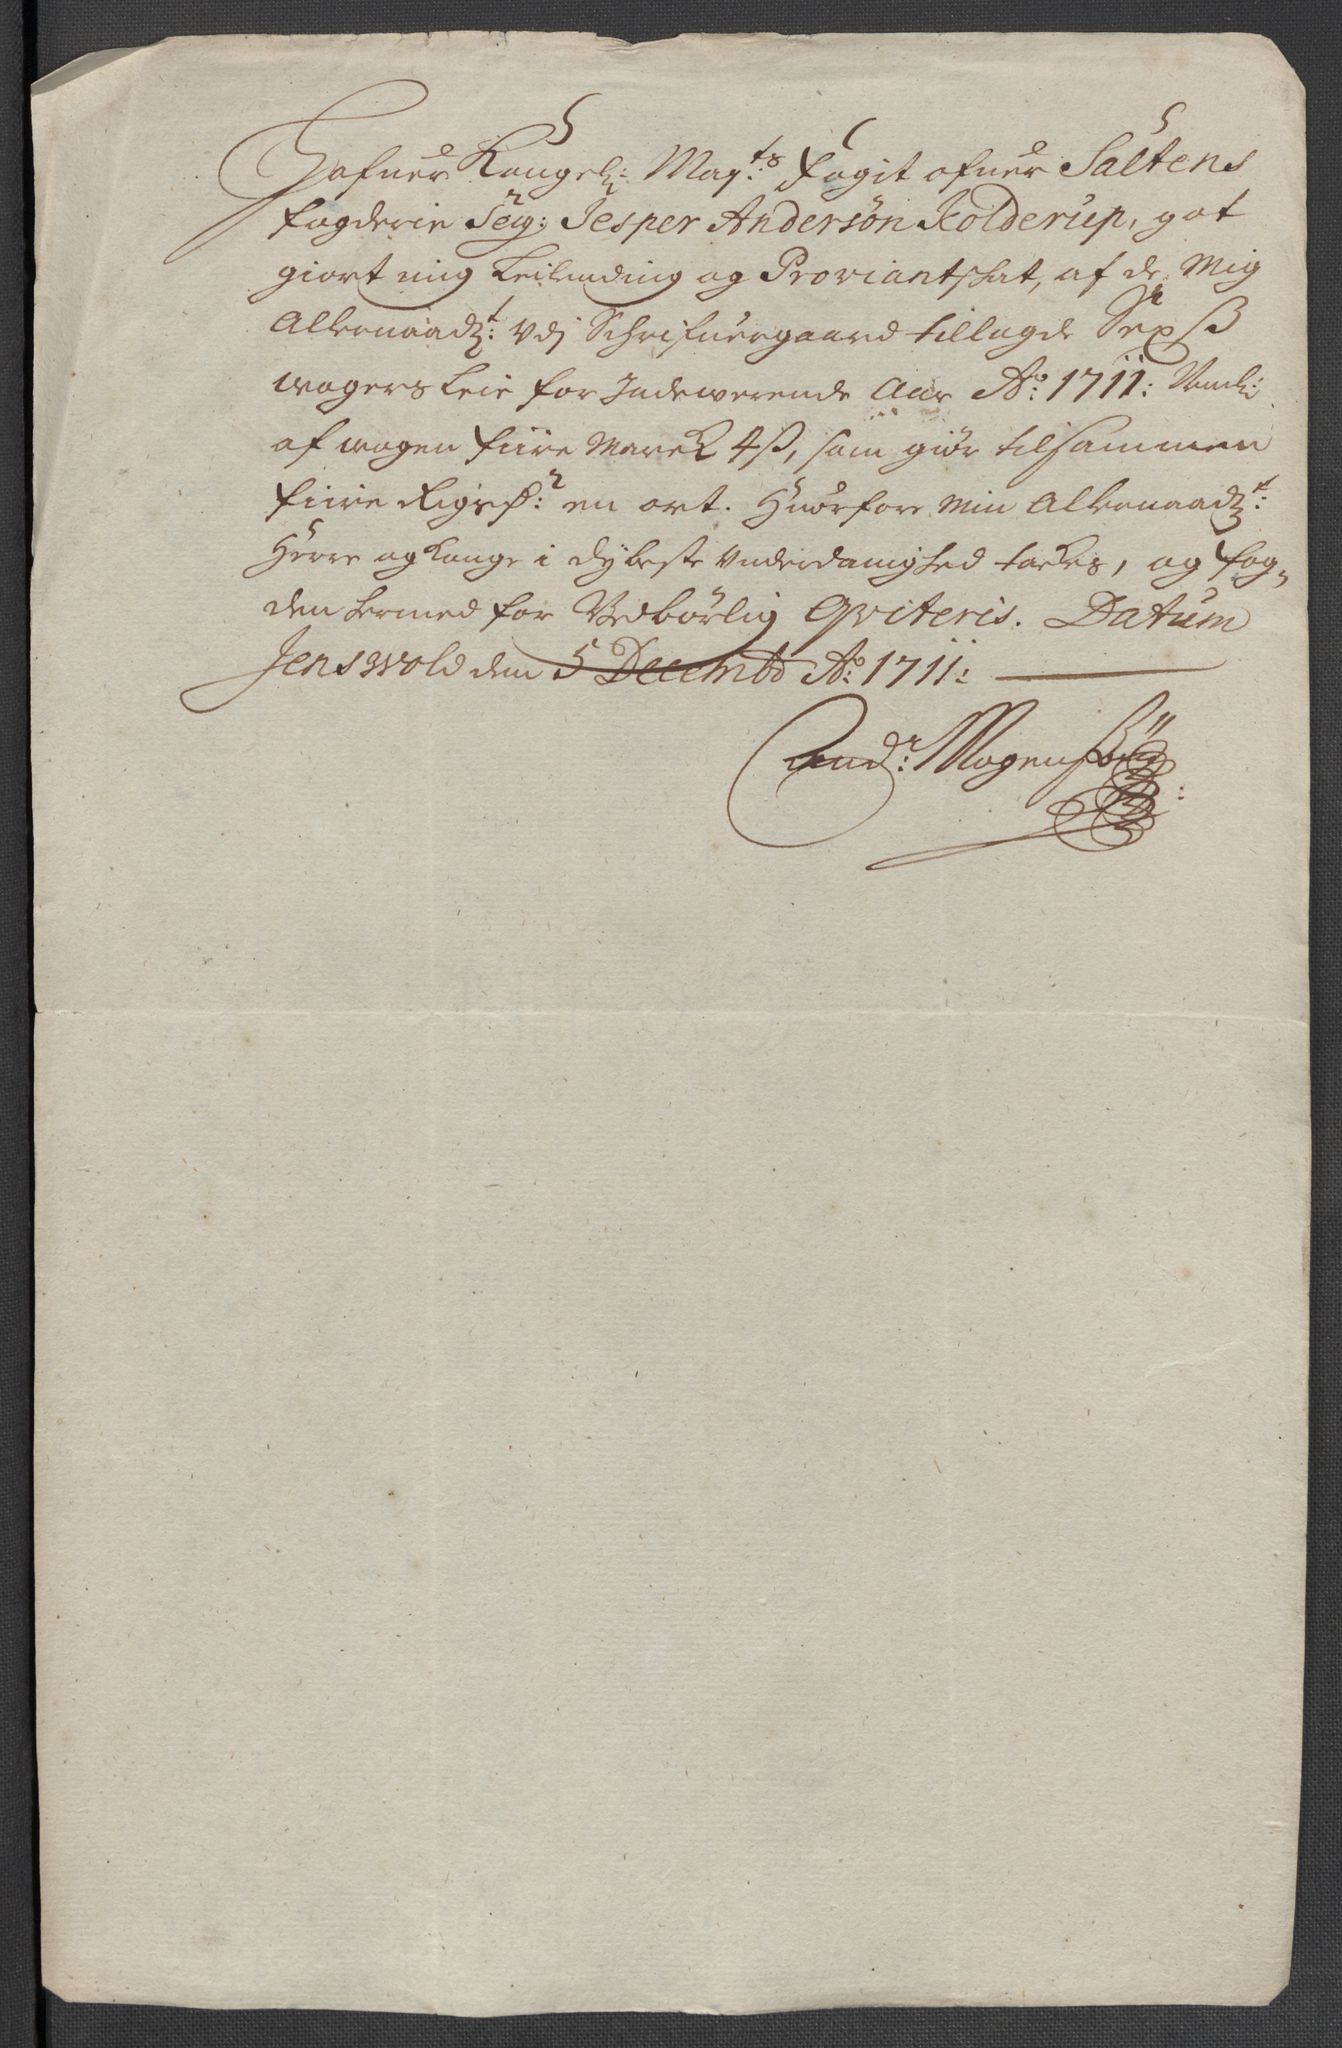 Hafuer Kongel: Mayts: fogit ofuer Saltens
fogderie Seig: Jesper Andersøn Kolderup, got
giort mig Leilending og Proviantskat, af de mig
Allernaadgt: vdj Schrifuergaard tillagde Sex ß
wogers Leie for Indewerende Aar Ao: 1711: Nemlig:
af wogen fiire Marck 4 ß, som giør tilsammen
fiire Rigsdr: en ort. Huorfore min Allernaadgt:
Herre og Konge i dybeste vnderdanighed tackes, og fog-
den hermed for Vedbørlig Qviteris. Datum
Jenswold den 5 Decembr Ao: 1711:
Andr: Mogensøn